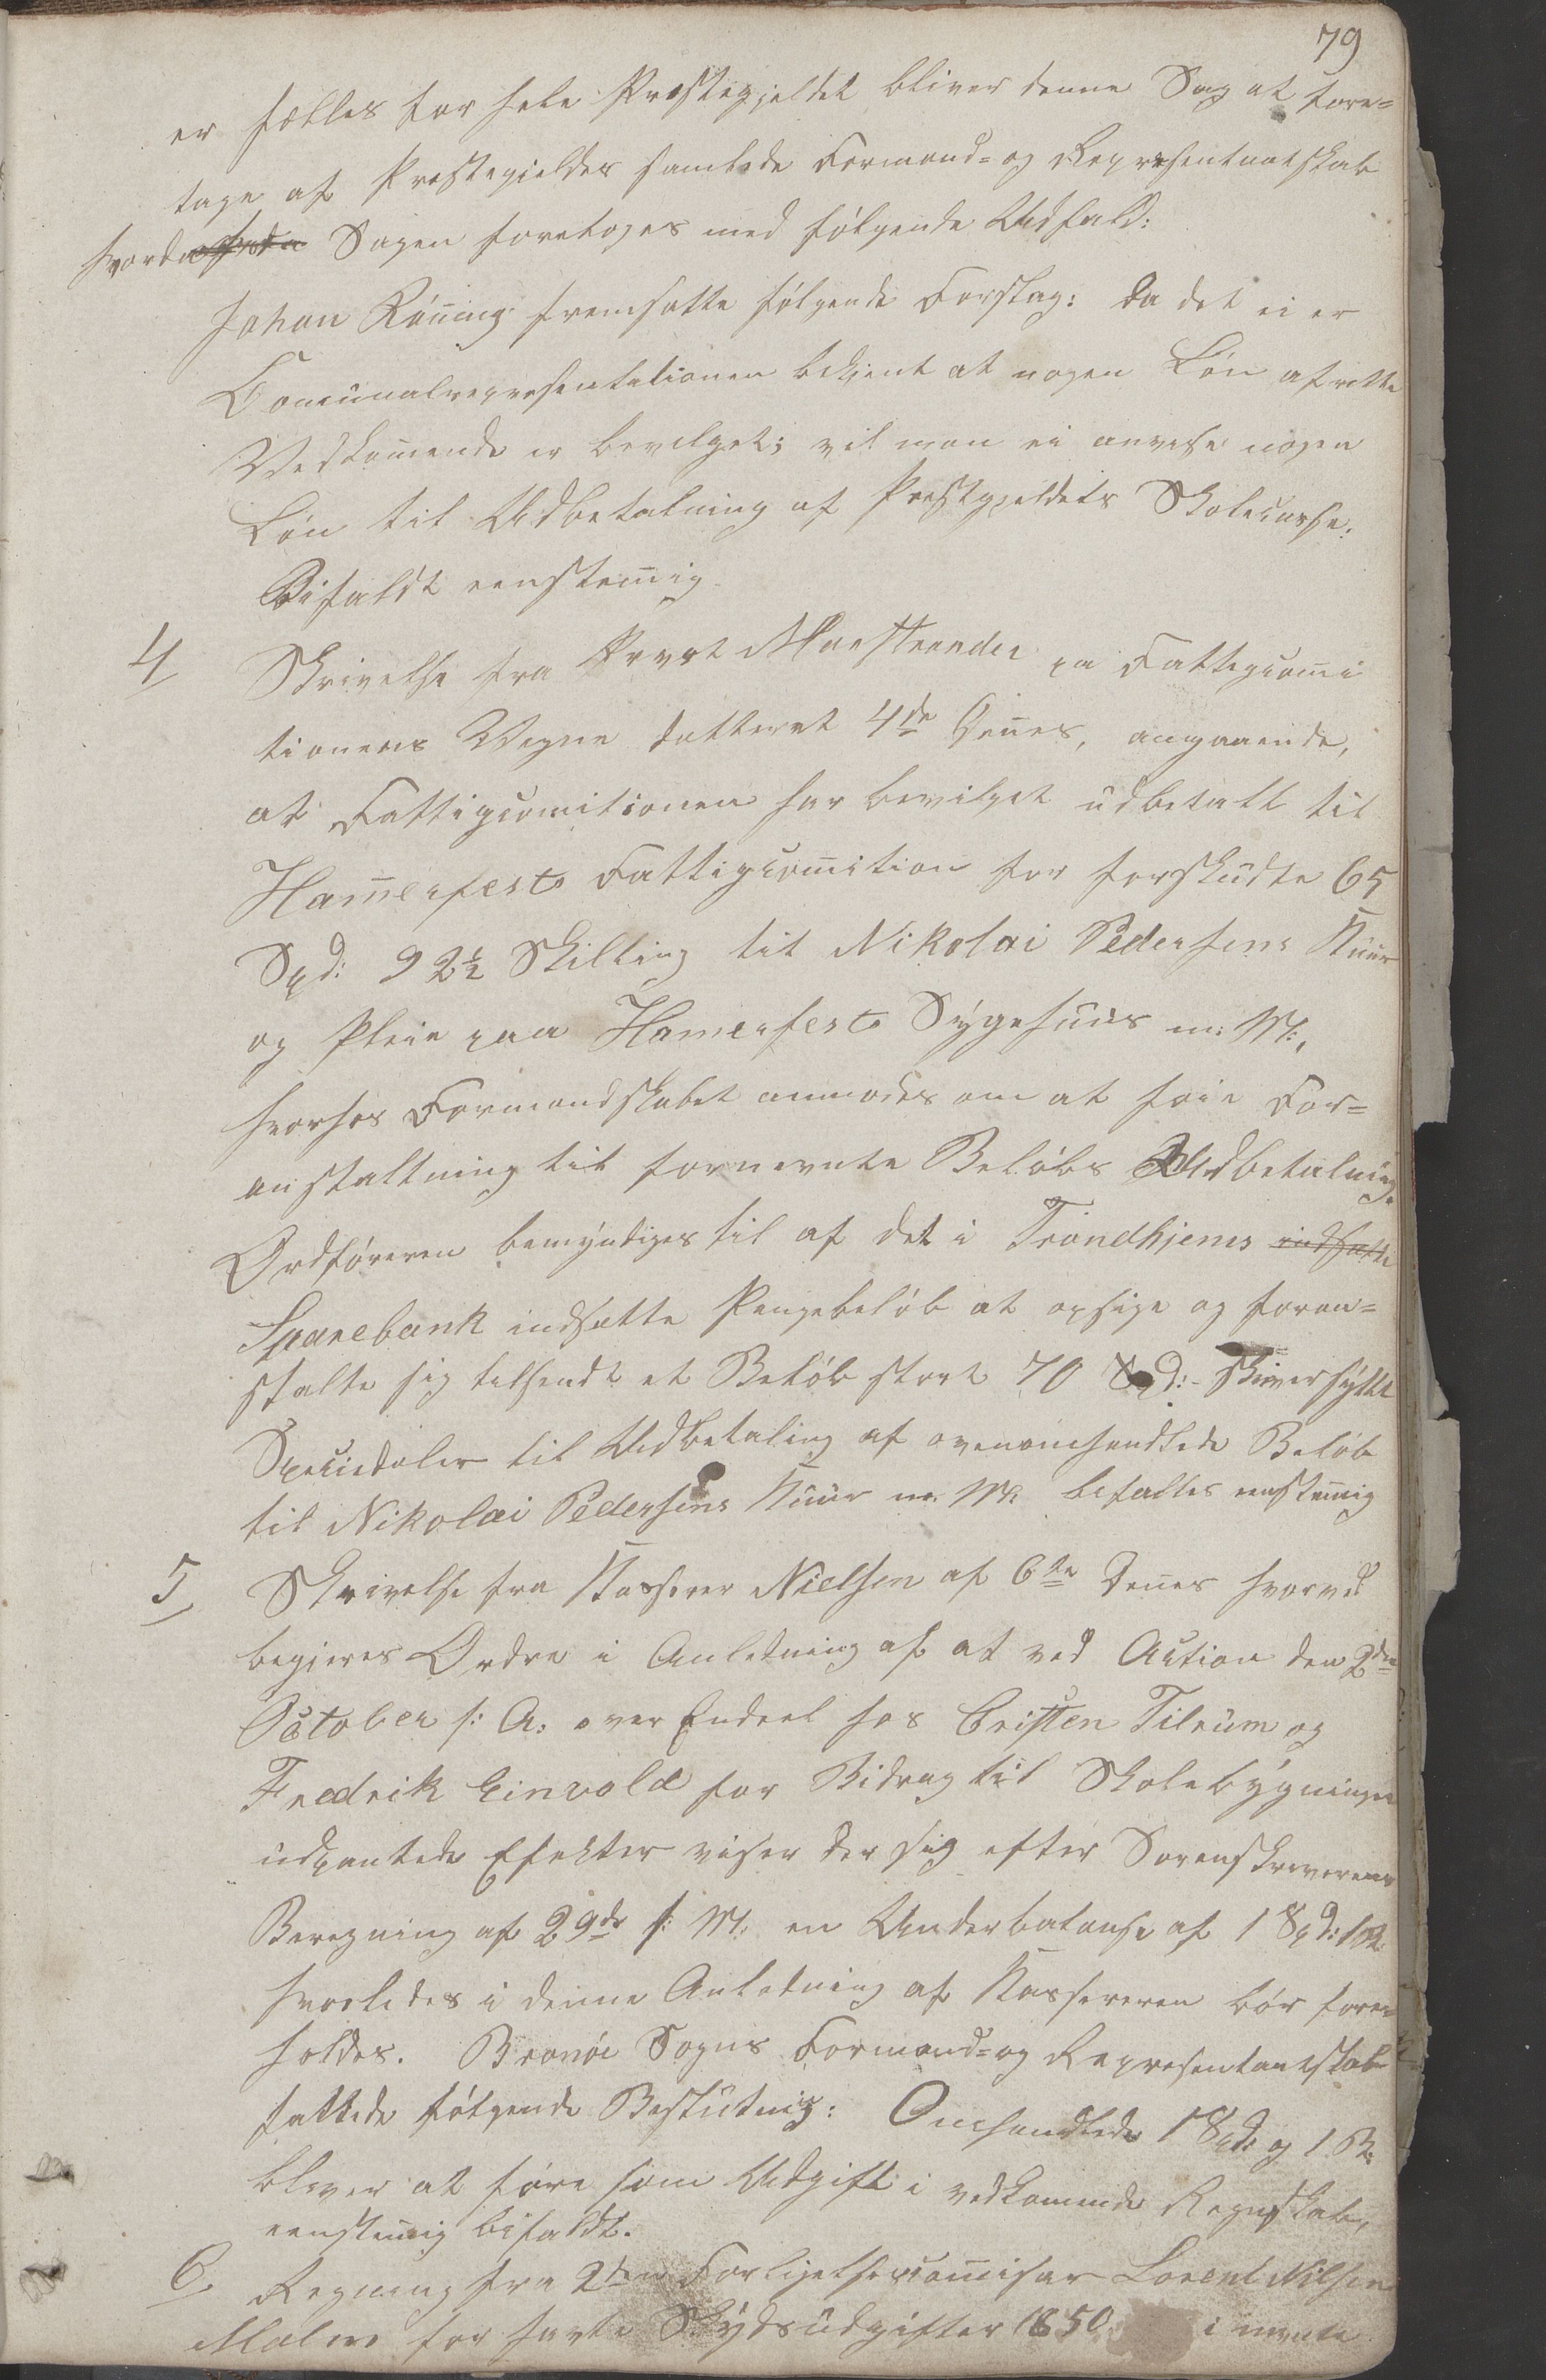 79
er fælles for hele Præstegjeldet bliver denne Sag at fore-
tage af Præstegieldes samlede Formand- og Representantskab
hvorda Sagen foretoges med følgende Udfald:
Johan Röning fremsatte følgende Forslag: Da det ei er
Comunalrepresentationen bekjent at nogen Løn af rette
Vedkomende er bevilget; vil man ei anvise nogen
Løn til Udbetalning af Prestgjeldets Skolecasse.
Bifaldt eenstemig.
4 Skrivelse fra Provst Marstrander paa Fattigcomi
tionens Vegne datteret 4de Dennes, angaaende,
at Fattigcomitionen har bevilget udbetalt til
Hamerfests Fattigcomition for forskudte 65
Spd: 92½ Skilling til Nikolai Pedersens Kuur
og Pleie paa Hamerfests Sygehuus m: M:,
hvorhos Formandskabet anmodes om at føie For-
anstaltning til fornevnte Beløbs Udbetalning.
Ordføreren bemyndiges til af det i Trondhjems indsatte
Sparebank indsatte Pengebeløb at opsige og foran-
stalte sig tilsendt et Beløb stort 70 Spd:- skiver sytti
Speciedaler til Udbetaling af ovenomhandlede Beløb
til Nikolai Pedersens Kuur m: M: bifaltes eenstemig
5 Skrivelse fra Kasserer Nielsen af 6te Denes hvorved
begjeres Ordre i Anledning af at ved Auction den 2den
October f: A: over Endeel hos Cristen Tilrum og
Fredrik Einvold for Bidrag til Skolebygningen
udpantede Efekter viser der sig efter Sorenskriverens
Beregning af 29de f: M: en Underbalanse af 1 Spd: 1 Ort
hvorledes i denne Anledning af Kassereren bør for
holdes. Brønøe Sogns Formand- og Representantskab
fattede følgende Beslutnig: Omhandlede 1 Spd: og 1 Ort
bliver at føre som Udgift i vedkomende Regnskab,
eenstemig bifaldt.
6 Regning fra 2den Forligelsescomisær Lorent Nilsen
Malm for havte Skydsudgifter 1850 i nevnte